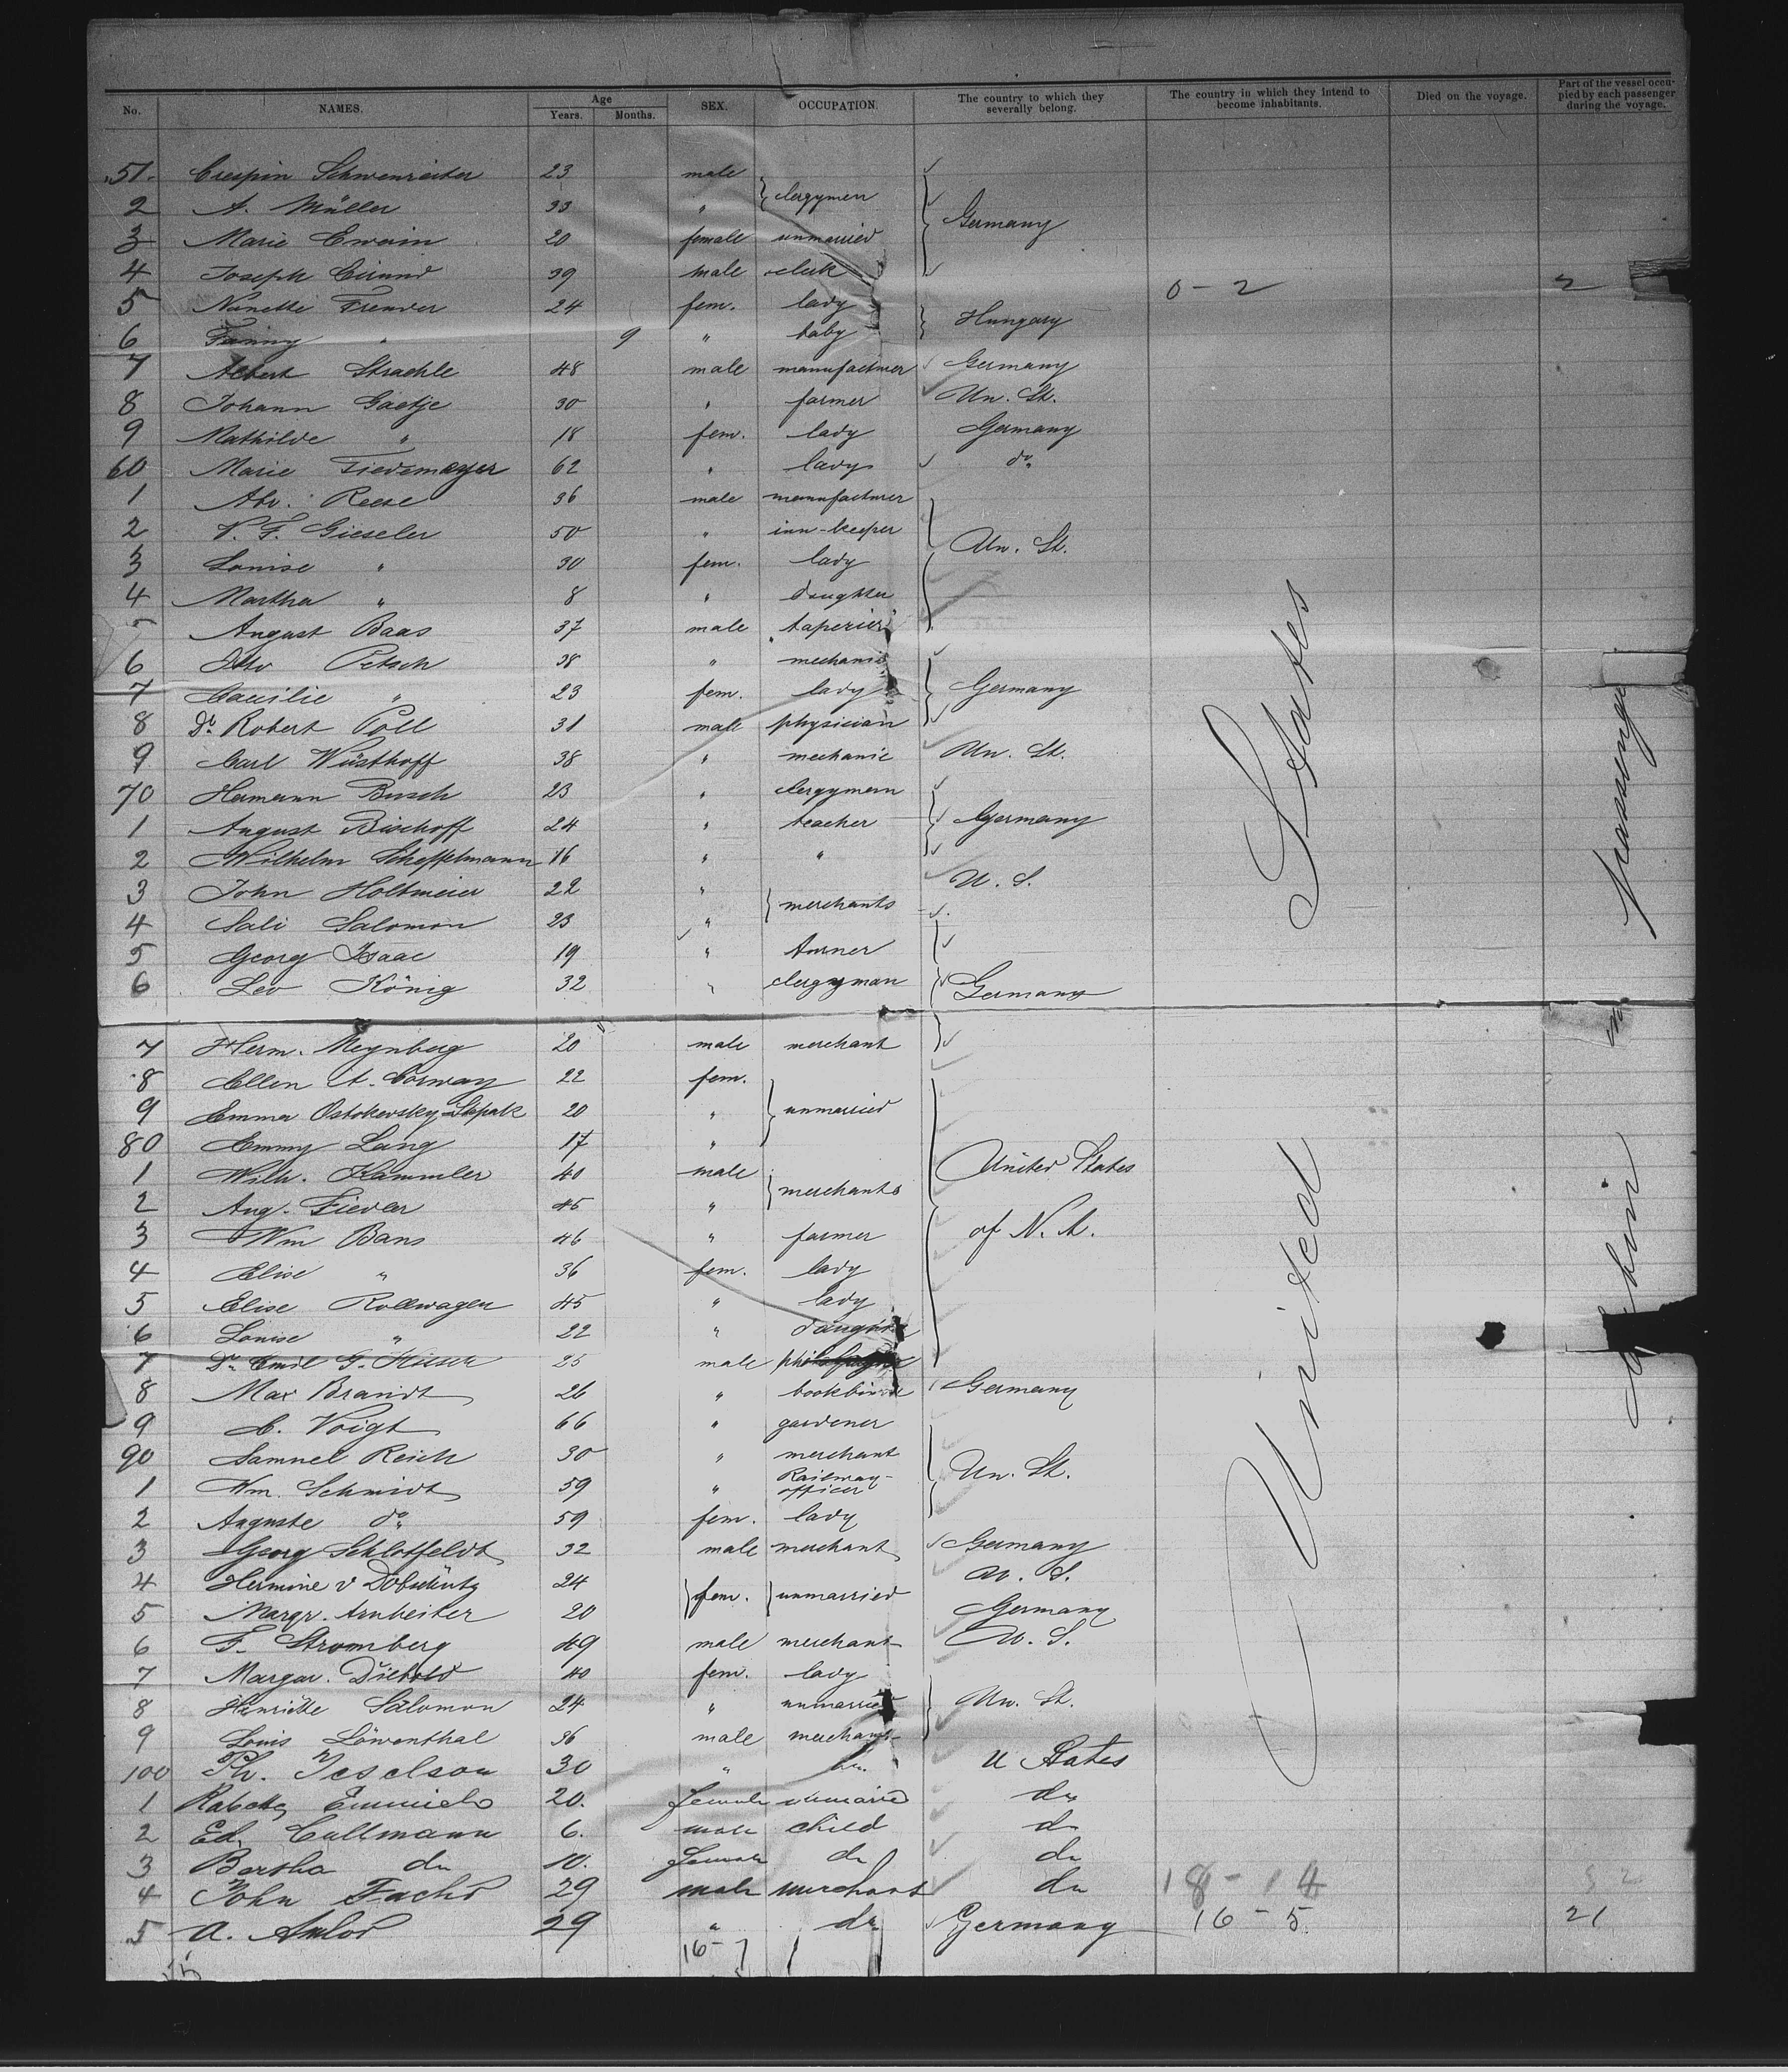 No. NAMES. Age Years. Months. SEX. OCCUPATION. The country to which they severally belong. The country in which they intend to become inhabitants. Died on the voyage. Part of the vessel occupied by each passenger during the voyage.
51. Crespin Schwenreiter 23 male
clergymen
2 A. Müller 33 "
Germany
3 Marie Erwein 20 female unmarried
4 Joseph 39 male clerk
0-2 2
5 Nanette Freuder 24 fem. lady
Hungary
6 Fanny " 9 " baby
7 Albert Straehle 48 male manufacturer Germany
8 Johann Gaetje 30 " farmer Un. St.
9 Mathilde " 18 fem. lady Germany
60 Marie Tiedemayer 62 " lady do
1 Abr. Reese 36 male manufacturer
2 V. F. Gieseler 50 " inn-keeper
Un. St.
3 Louise " 30 fem. lady
4 Martha " 8 " daughter
5 August Baas 37 male "taperier"
6 Otto Petsch 38 " mechanic
7 Caecilie " 23 fem. lady Germany
8 Dr. Robert Poll 31 male physician
9 Carl Wüsthoff 38 " mechanic Un. St.
70 Hermann Busch 23 " clergyman
1 August Bischoff 24 " teacher Germany
2 Wilhelm Scheffelmann 16 " "
3 John Holtmeier 22 " U. S.
merchants
4 Sali Salomon 23 "
5 Georg Isaac 19 " turner
6 Leo König 32 " clergyman Germany
7 Herm. Meynberg 20 male merchant
8 Ellen A. Corway 22 fem.
9 Emma Ostokevsky 20 " unmarried
80 Emmy Lang 17 "
1 Wilh. Kammler 40 male United States
merchants
2 Aug. Fiedler 45 "
3 Wm Bans 46 " farmer of N. A.
4 Elise " 36 fem. lady
5 Elise Rollwagen 45 " lady
6 Louise " 22 " daughter
7 Dr. Emil G. Hirsch 25 male
8 Max Brandt 26 " bookbinder Germany
9 C. Voigt 66 " gardener
90 Samuel Reich 30 " merchant
Un. St.
1 Wm. Schmidt 59 " Railway-officer
2 Auguste do 59 fem. lady
3 Georg Schlotfeldt 32 male merchant Germany
4 Hermine v Dobschütz 24 U. S.
fem. unmarried
5 Margr. Arnheiter 20 Germany
6 F. Stromberg 49 male merchant U. S.
7 Margar. Diebold 40 fem. lady
8 Henriette Salomon 24 " unmarried Un. St.
9 Louis Löwenthal 36 male merchant
100 Ph. Jeselson 30 " do U States
1 20. female unmarried do
2 Ed. Cullmann 6. male child do
3 Bertha do 10. female do do
4 John Fachs 29 male merchant do 18-14 52
5 A. 29 " do Germany 16-5. 21
16-
United States
Cabin passenger